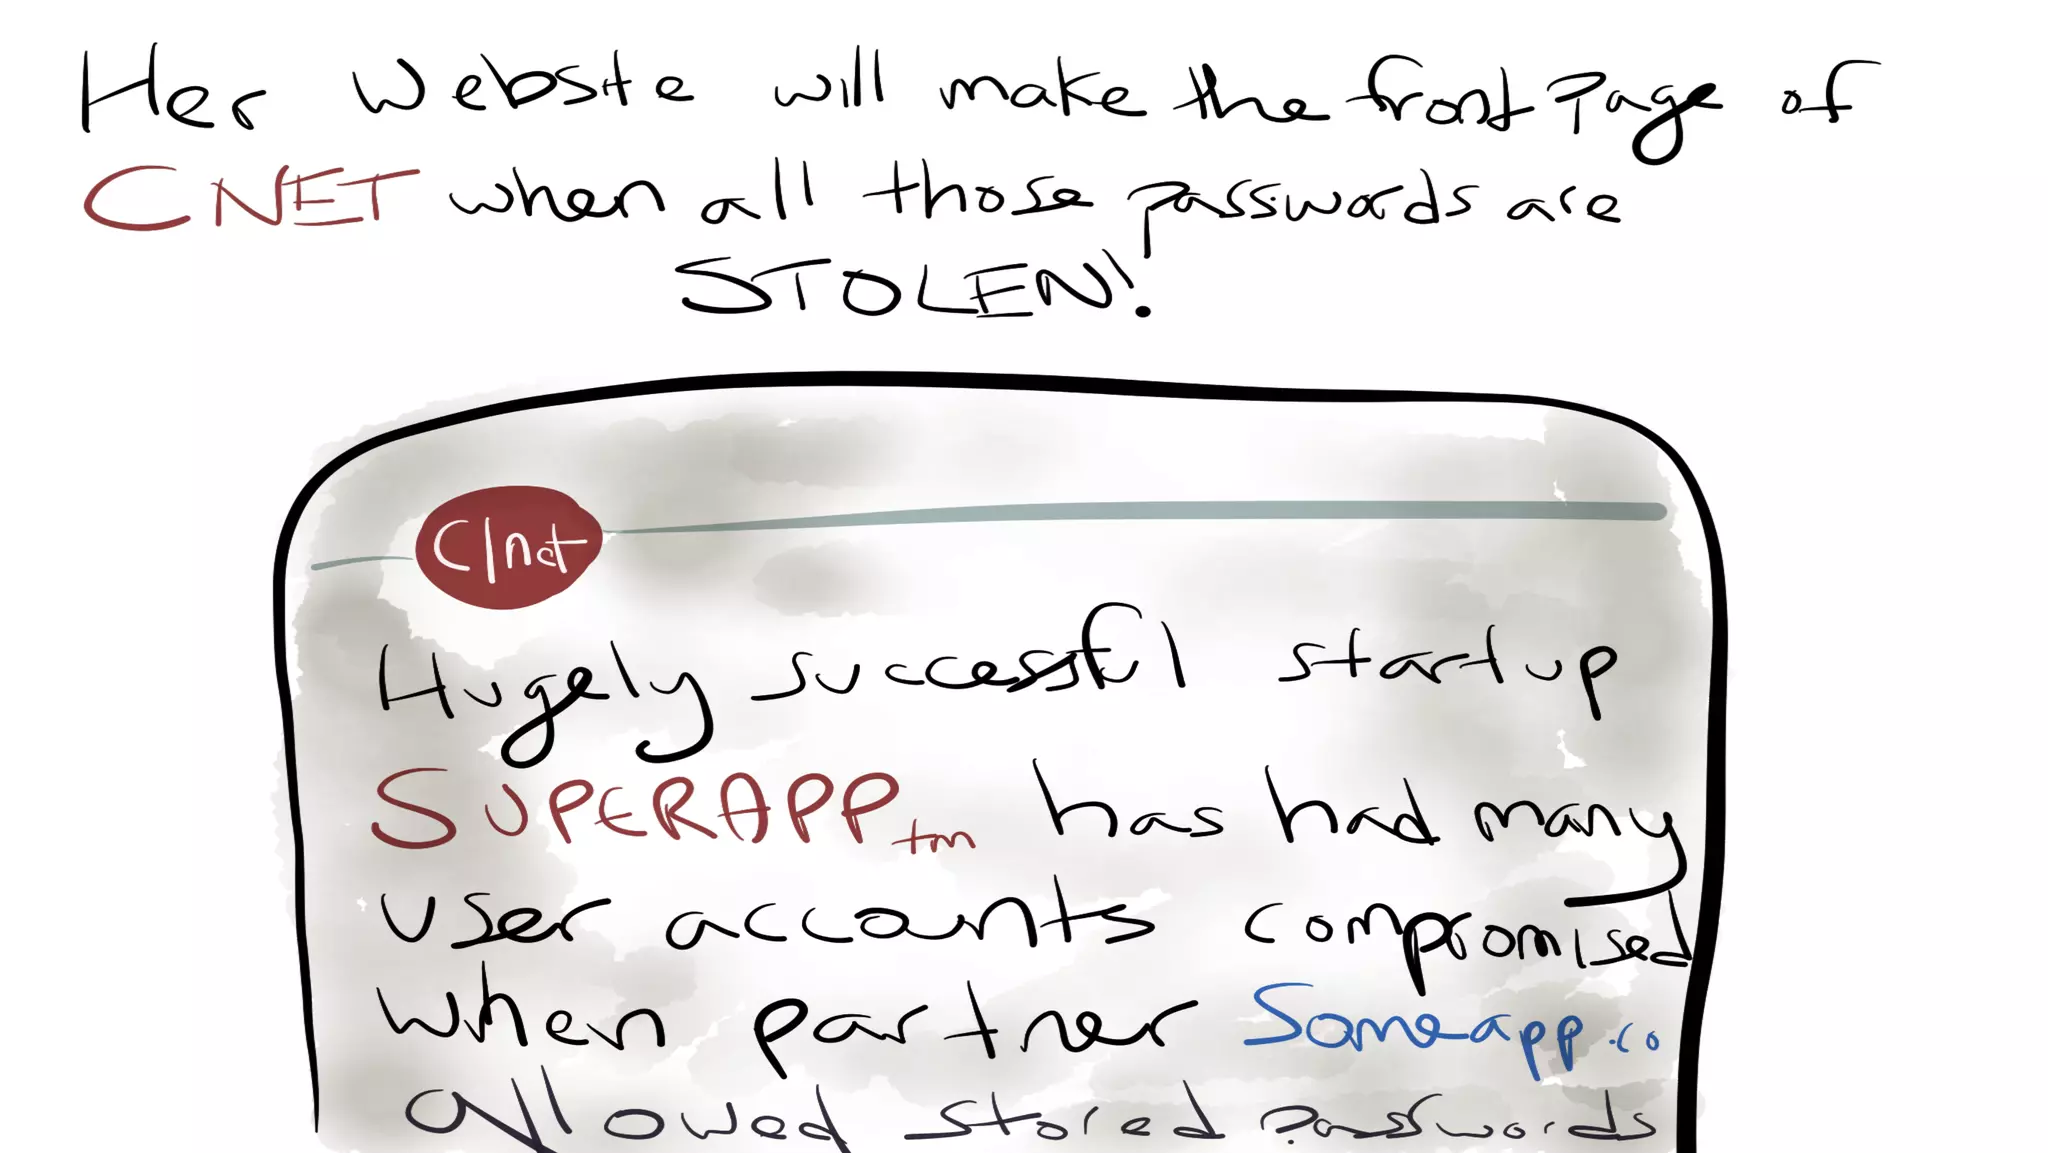 Her Webste will make the front Page of
CNET when all those passwords are
STOLEN!
C|net
Hugely successful startup
SUPERAPP tm has had many
user accounts compromised
when partner Someapp.co
allowed stored Passwords